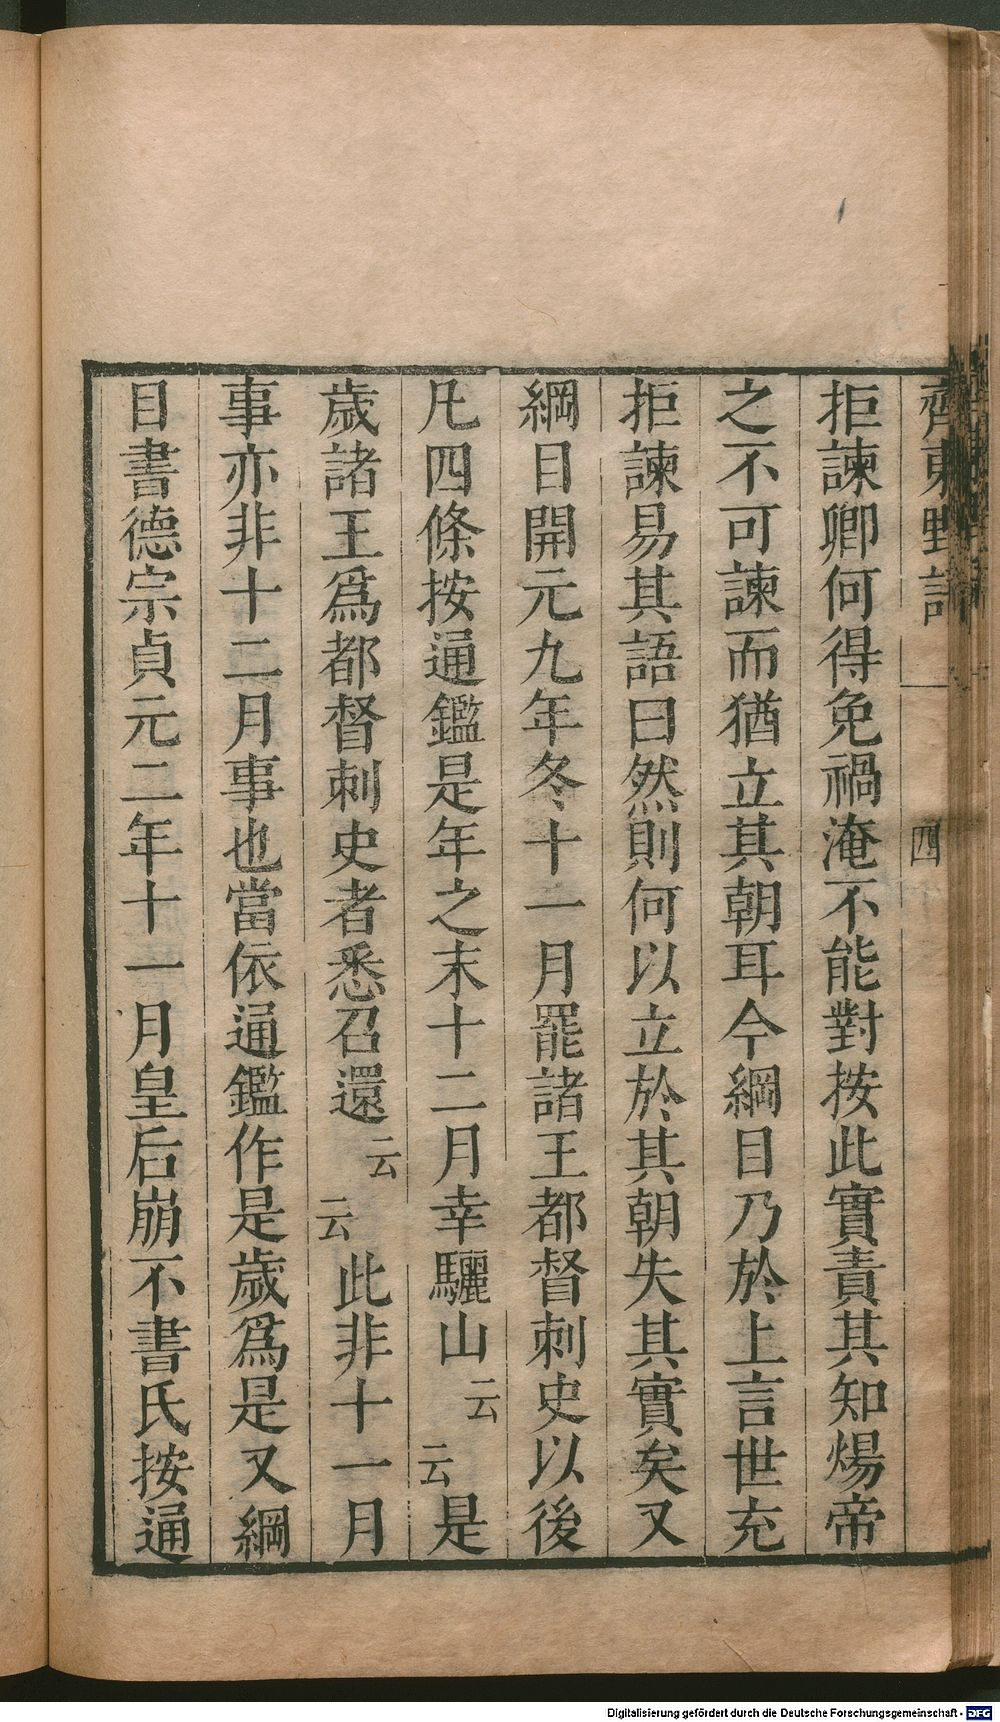 齊東野語
四
拒諫卿何得免禍淹不能對按此實責其知煬帝
之不可諫而猶立其朝耳今綱目乃於上言世充
拒諫易其語曰然則何以立於其朝失其實矣又
綱目開元九年冬十一月罷諸王都督刺史以後
凡四條按通鑑是年之末十二月幸驪山云云是
歲諸王爲都督刺史者悉召還云云此非十一月
事亦非十二月事也當依通鑑作是歲爲是又綱
目書德宗貞元二年十一月皇后崩不書氏按通
Digitalisierung gefördert durch die Deutsche Forschungsgemeinschaft - DFG